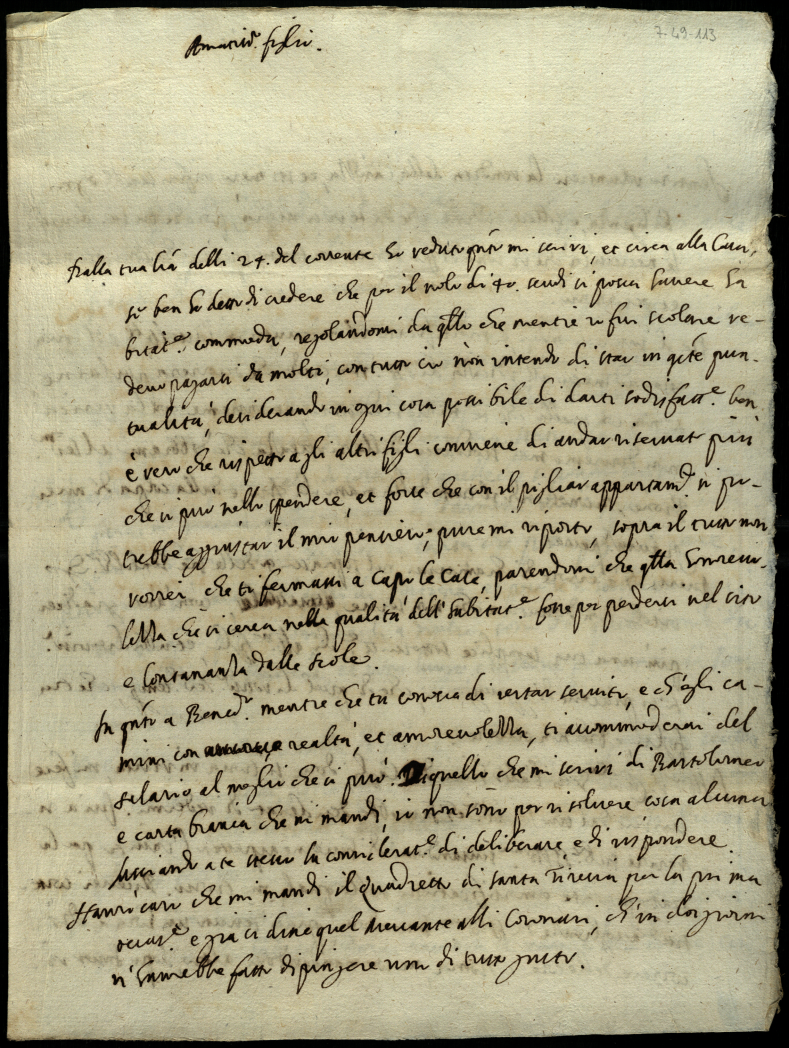 7-49-113
Amatiss.º figlio.
Dalla tua l̃ra delli 24. del corrente ho veduto q̃nto mi scrivi, et circa alla Casa,
se ben ho detto di credere che per il nolo di 40. scudi si possa havere ha
bitat.e commoda, regolandomi da q̃llo che mentre io fui scolare ve-
devo pagarsi da molti, con tutto ciò non intendo di star in q̃ste pun-
tualità, desiderando in ogni cosa possibile di darti sodisfatt.e ben
è vero che rispetto agli altri figli conviene di andar riservato più
che si può nello spendere, et forse che con il pigliar appartam.to si po-
trebbe aggiustar il mio pensiero; pure mi riporto, sopra il tutto non
vorrei che ti fermassi a Capo le Case, parendomi che q̃lla
che si cerca nella qualità dell' habitat.e fosse per perdersi nel sito
e lontananza dalle scole.
In q̃nto a Bened.o mentre che tu conosca di restar servito, e ch'egli ca-
mini con realtà, et amorevolezza, ti accommoderai del
salario al meglio che si può. Di quello che mi scrivi di Bartolomeo
e carta bianca che mi mandi, io non sono per risolvere cosa alcuna
lasciando a te stesso la considerat.e di deliberare e di rispondere.
Havrò caro che mi mandi il Quadretto di santa Teresia per la prima
occas.e e già ci disse quel Mercante alli Coronari, ch'in doi giorni
n'haverebbe fatto dipingere uno di tutto gusto.